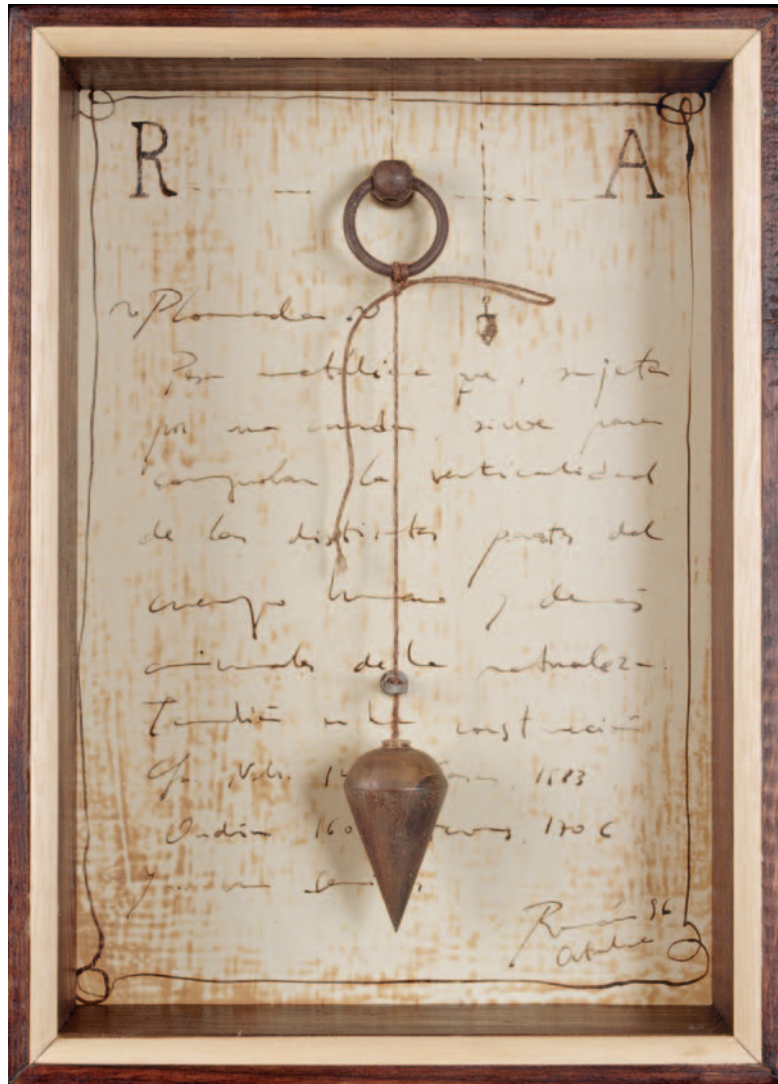 R A
Plomada
Pesa metálica que, sujeta
por una cuerda, sirve para
comprobar la verticalidad
de las distintas partes del
cuerpo humano y demás
animales de la naturaleza.
También en la construcción
1683
Oudin 160 1706
Román 96